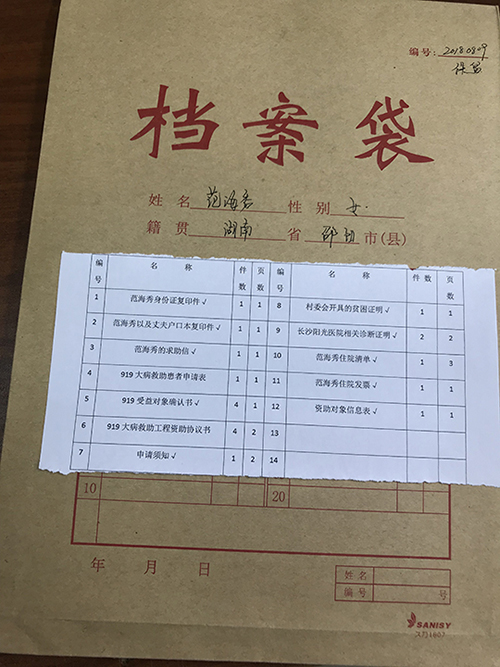 编号: 2018.0809
档案袋
姓名 范海秀 性别 女.
籍贯 湖南 省 邵阳 市(县)
编号 名称 件数 页数 编号 名称 件数 页数
1 范海秀身份证复印件√ 1 1 8 村委会开具的贫困证明√ 1 1
2 范海秀以及丈夫户口本复印件√ 1 1 9 长沙阳光医院相关诊断证明√ 2 2
3 范海秀的求助信√ 1 1 10 范海秀住院清单√ 1 3
4 919大病救助患者申请表 1 1 11 范海秀住院发票√ 1 1
5 919受益对象确认书√ 4 1 12 资助对象信息表√ 1 1
6 919大病救助工程资助协议书 4 2 13
7 申请须知√ 1 2 14
10 20
年 月 日
姓名
编号 号
SANISY